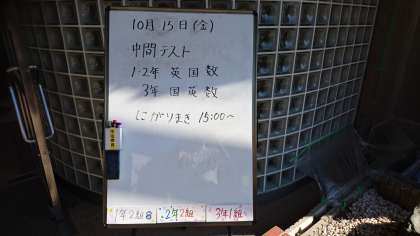 10月15日(金)
中間テスト
1・2年 英国数
3年 国英数
しこがりまき 15:00〜
1年2組8
2年2組
3年1組